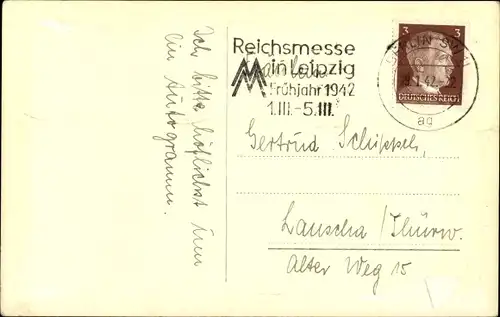 Ich bitte höflichst um
ein Autogramm.
Reichsmesse
in Leipzig
Frühjahr 1942
1.III.–5.III.
BERLIN SW 11
42
ag
3 3
DEUTSCHES REICH
Gertrud Schippel,
Lauscha / Thürw.
Alter Weg 15